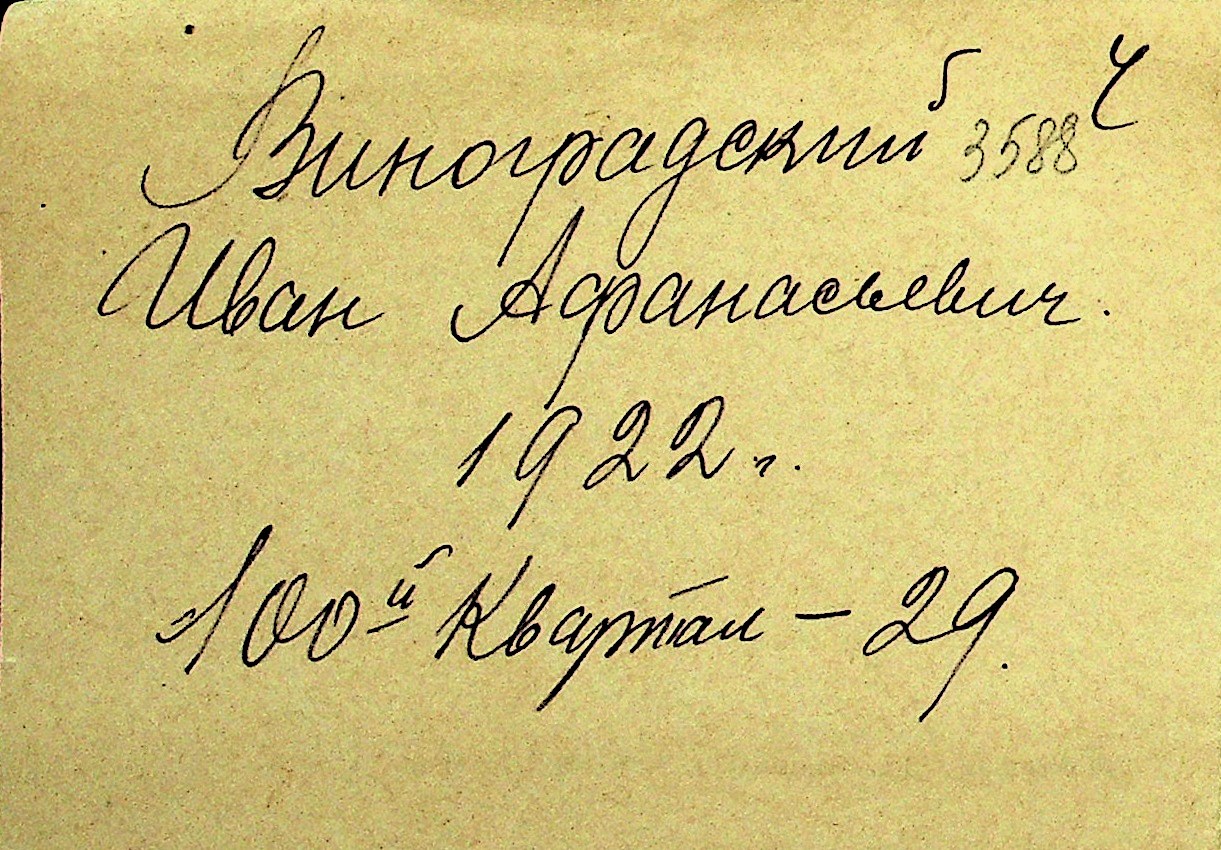 Виноградский 3588 Ч
Иван Афанасьевич.
1922 г.
100й Квартал – 29.